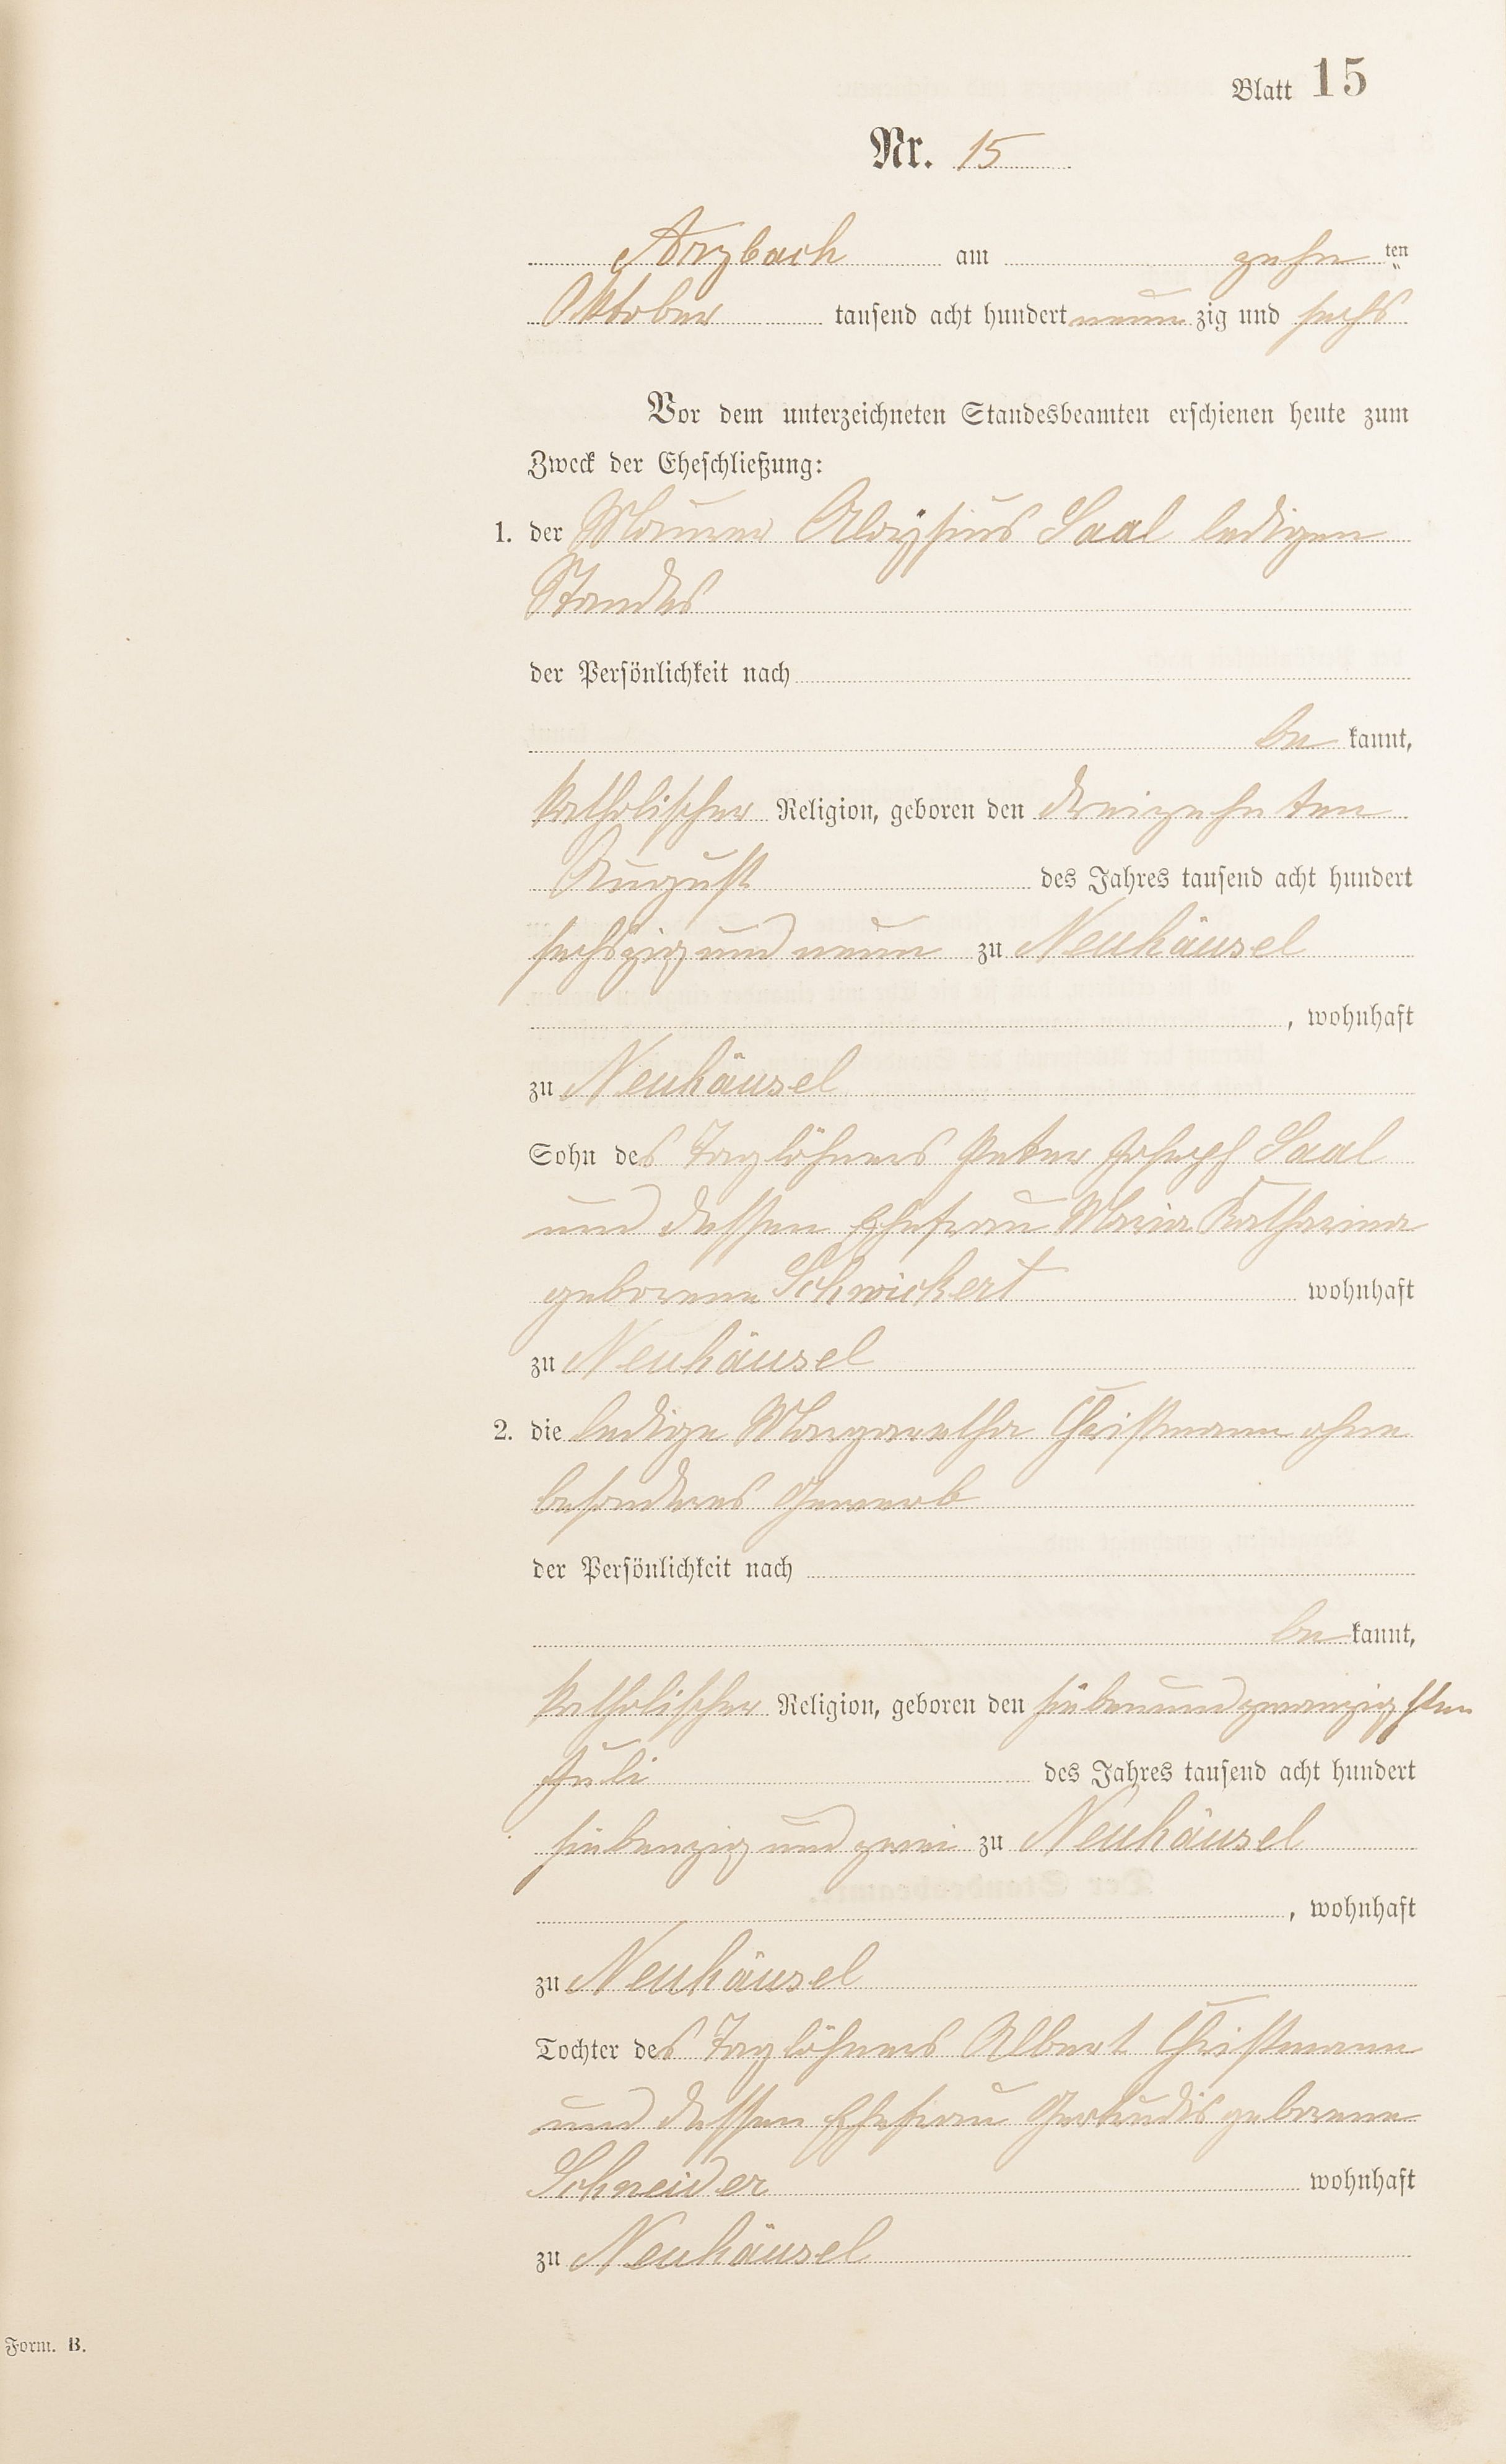 Blatt 15
Nr. 15
Arzbach am zehn ten
Oktober tausend acht hundert neun zig und sechs
Vor dem unterzeichneten Standesbeamten erschienen heute zum
Zweck der Eheschließung:
1. der Maurer Aloysius Saal ledigen
Standes
der Persönlichkeit nach
be kannt,
katholischer Religion, geboren den dreizehnten
August des Jahres tausend acht hundert
sechszig und neun zu Neuhäusel
, wohnhaft
zu Neuhäusel
Sohn des Taglöhners Peter Joseph Saal
und dessen Ehefrau Maria Katharina
geborene Schwickert wohnhaft
zu Neuhäusel
2. die ledige Margaretha Christmann ohne
besonderes Gewerb
der Persönlichkeit nach
be kannt,
katholischer Religion, geboren den siebenundzwanzigsten
Juli des Jahres tausend acht hundert
siebenzig und zwei zu Neuhäusel
, wohnhaft
zu Neuhäusel
Tochter des Taglöhners Albert Christmann
und dessen Ehefrau Gertrudis geborene
Schneider wohnhaft
zu Neuhäusel
Form. B.